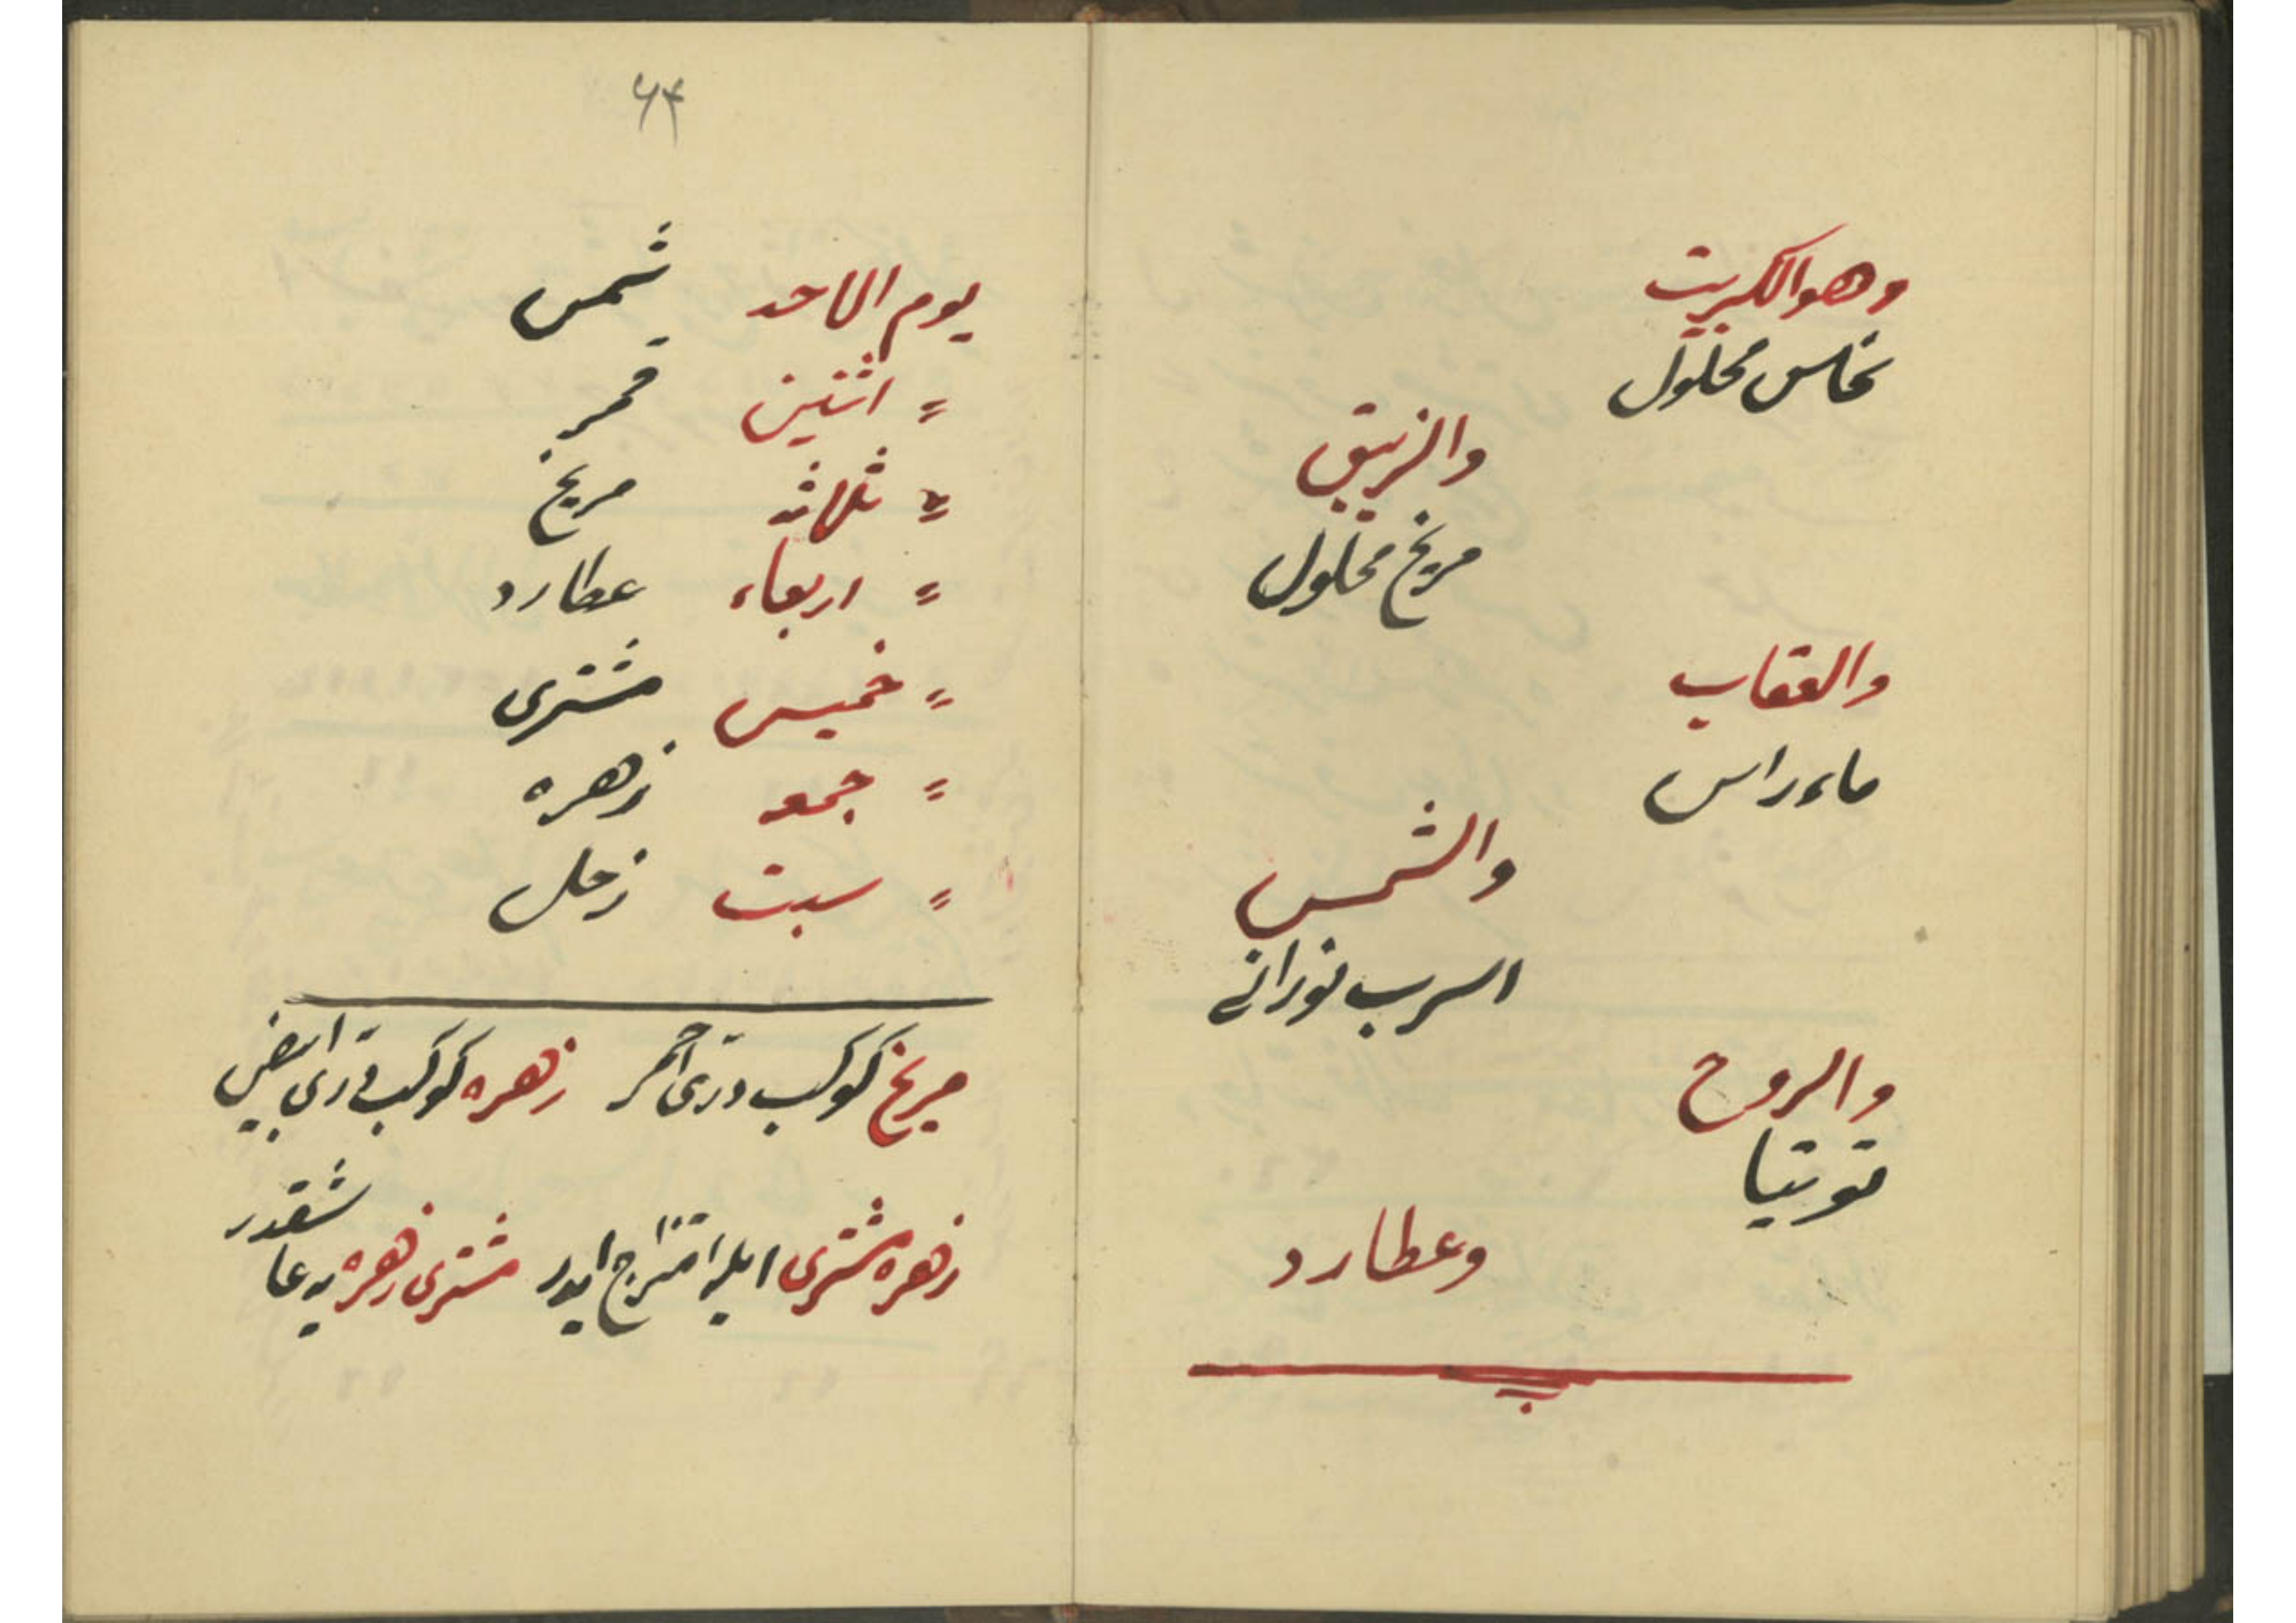 وهو الكبريت
نحاس محلول
والزيبق
مريخ محلول
والعقاب
ماء راس
والشمس
اسرب نورانى
والروح
توتيا
وعطارد
۶۴
يوم الاحد شمس
〃 اثنين قمر
〃 ثلاثه مريخ
〃 اربعاء عطارد
〃 خميس مشترى
〃 جمعه زهره
〃 سبت زحل
مريخ كوكب درى احمر زهره كوكب درى ابيض
زهره مشترى ايله امتزاج ايدر مشترى زهره يه عا
شقدر